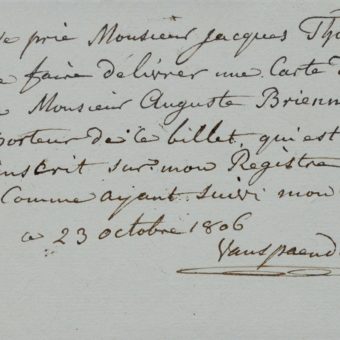 Je prie Monsieur Jacques Tho
e faire délivrer une Carte d
Monsieur Auguste Brienn
porteur de ce billet, qui est
inscrit sur mon Registre
Comme ayant suivi mon
ce 23 octobre 1806
Vanspaend